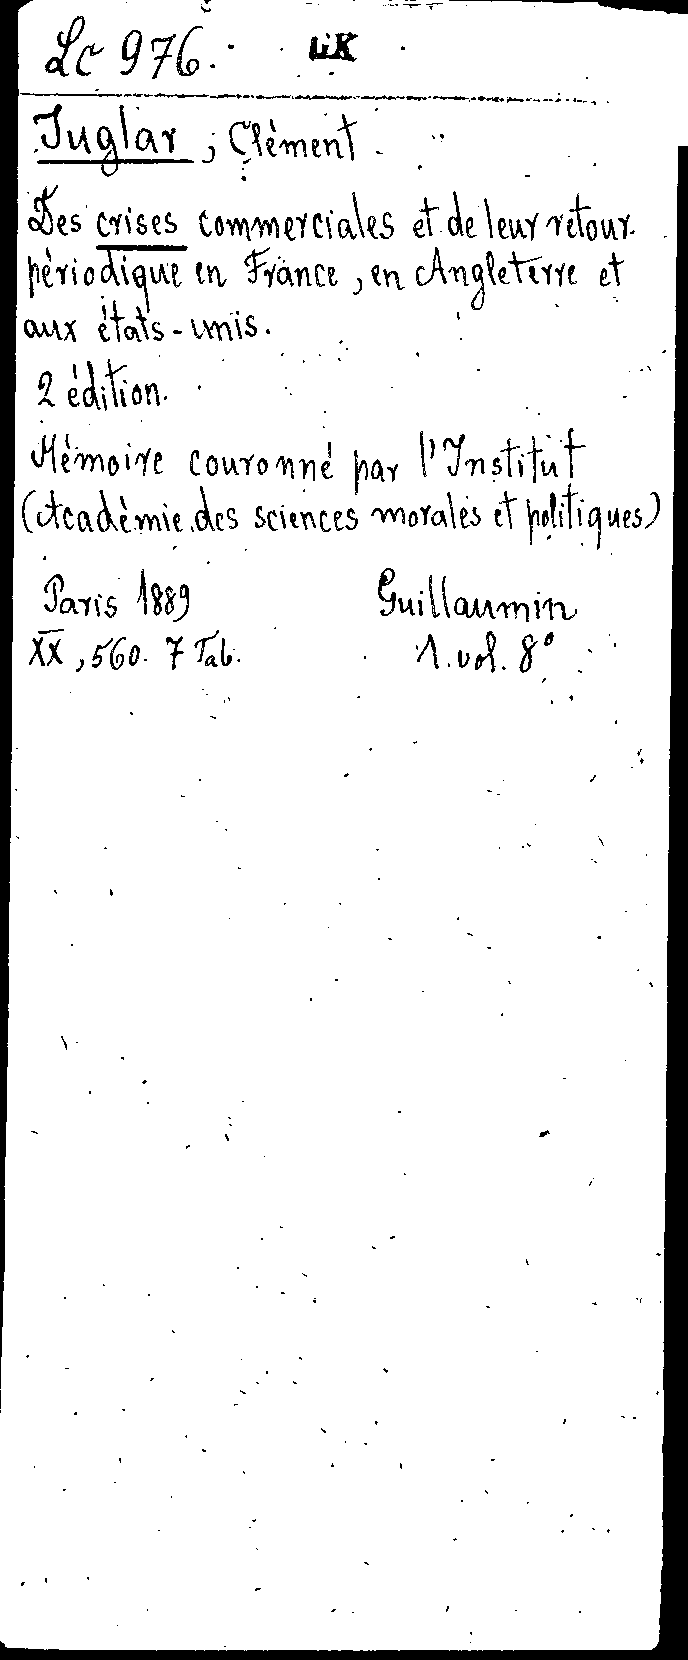 Lc 976. LiX
Juglar, Clément
Des crises commerciales et de leur retour
périodique en France, en Angleterre et
aux états-unis.
2 édition.
Mémoire couronné par l'Institut
(Académie des sciences morales et politiques)
Paris 1889 Guillaumin
XX, 560. 7 Tab. 1. vol. 8°